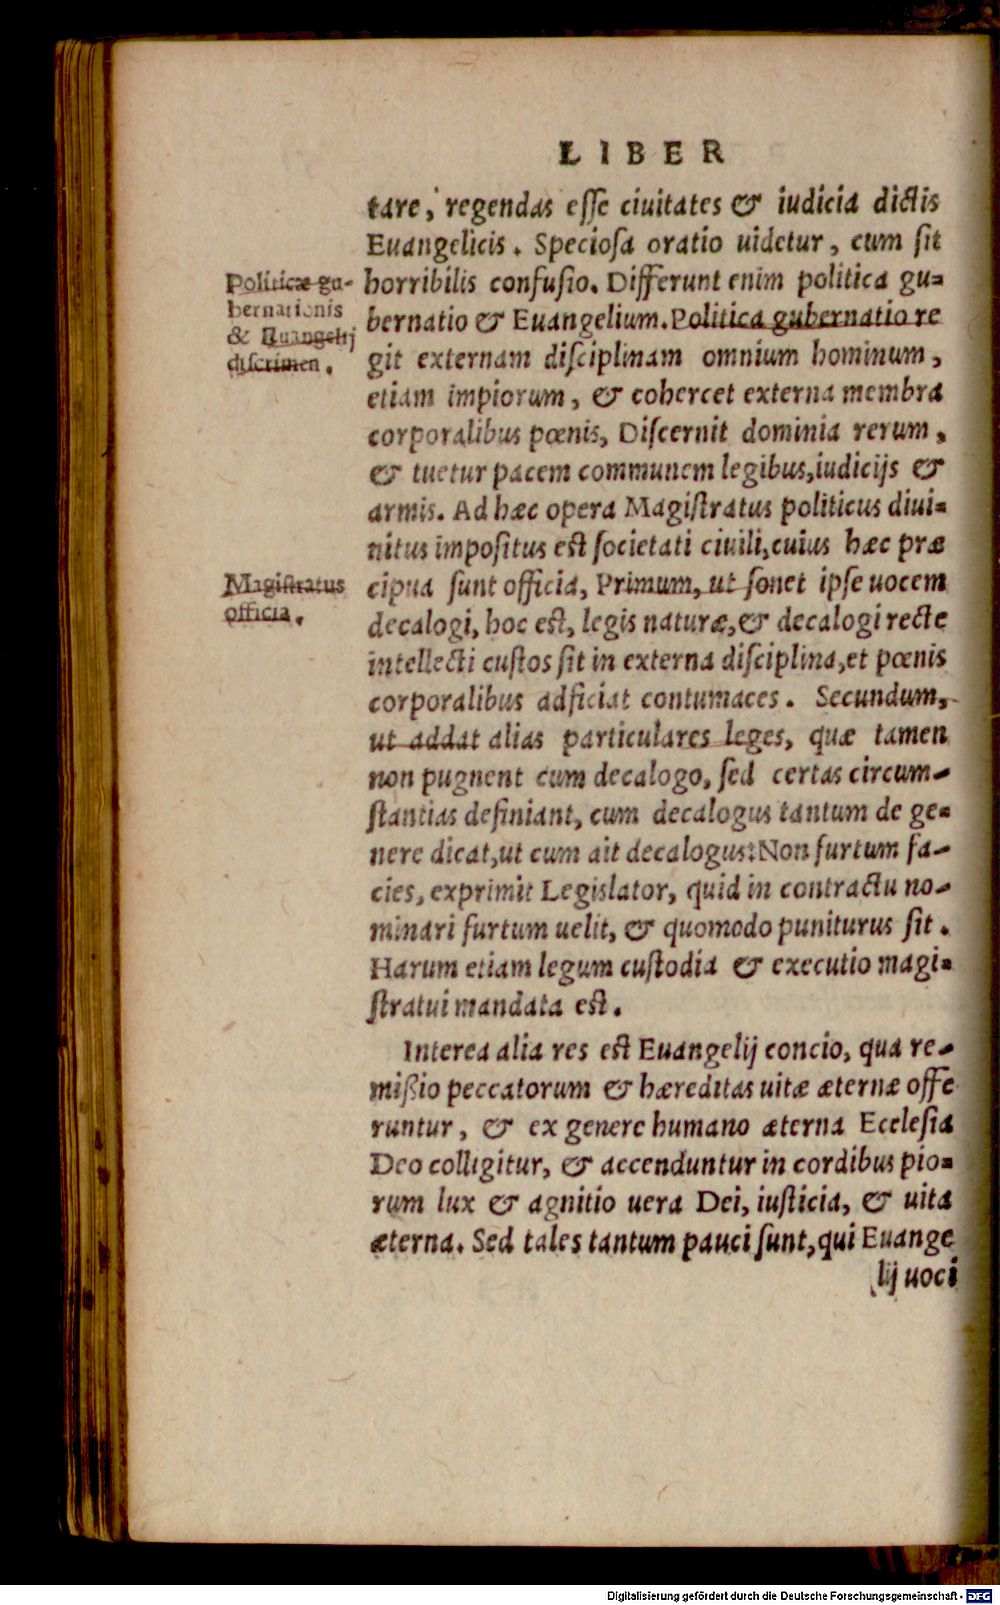 LIBER
tare, regendas esse ciuitates & iudicia dictis
Euangelicis. Speciosa oratio uidetur, cum sit
horribilis confusio. Differunt enim politica gu-
bernatio & Euangelium. Politica gubernatio re
git externam disciplinam omnium hominum,
etiam impiorum, & cohercet externa membra
corporalibus pœnis, Discernit dominia rerum,
& tuetur pacem communem legibus, iudicijs &
armis. Ad hæc opera Magistratus politicus diui-
nitus impositus est societati ciuili, cuius hæc præ
cipua sunt officia, Primum, ut sonet ipse uocem
decalogi, hoc est, legis naturæ, & decalogi recte
intellecti custos sit in externa disciplina, et pœnis
corporalibus adficiat contumaces. Secundum,
ut addat alias particulares leges, quæ tamen
non pugnent cum decalogo, sed certas circum-
stantias definiant, cum decalogus tantum de ge-
nere dicat, ut cum ait decalogus: Non furtum fa-
cies, exprimit Legislator, quid in contractu no-
minari furtum uelit, & quomodo puniturus sit.
Harum etiam legum custodia & executio magi-
stratui mandata est.
Interea alia res est Euangelij concio, qua re-
mißio peccatorum & hæreditas uitæ æternæ offe
runtur, & ex genere humano æterna Ecclesia
Deo colligitur, & accenduntur in cordibus pio-
rum lux & agnitio uera Dei, iusticia, & uita
æterna. Sed tales tantum pauci sunt, qui Euange
lij uoci
Politicæ gu-
bernationis
& Euangelij
discrimen.
Magistratus
officia.
Digitalisierung gefördert durch die Deutsche Forschungsgemeinschaft - DFG